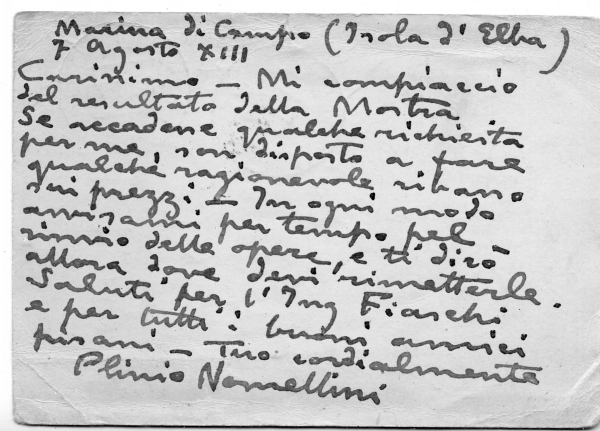 Marina di Campo (Isola d'Elba)
7 Agosto XIII
Carissimo – Mi compiaccio
del resultato della Mostra
Se accadesse qualche richiesta
per me, son disposto a fare
qualche ragionevole ribasso
sui prezzi – In ogni modo
avvisami per tempo pel
rinvio delle opere, e ti dirò
allora dove devi rimetterle.
Saluti per l'Ing Fiaschi
e per tutti i buoni amici
pisani – Tuo cordialmente
Plinio Nomellini